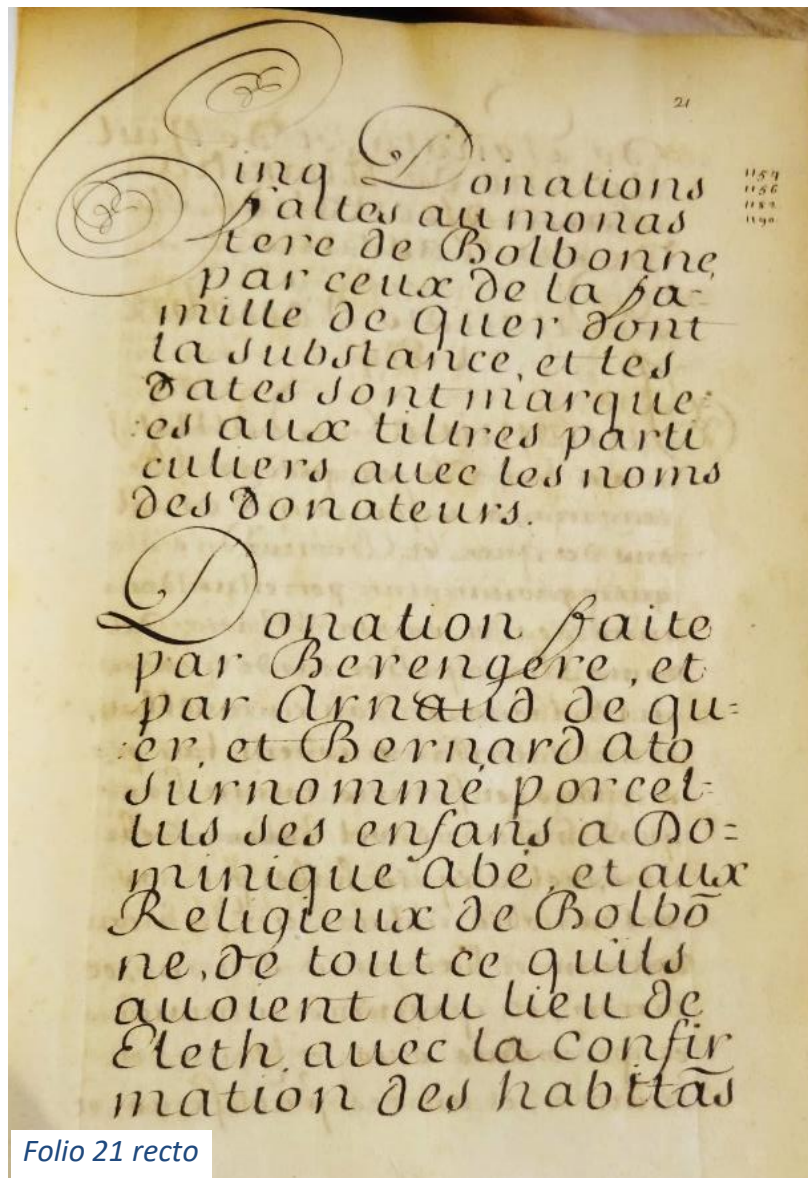 21
Cinq Donations
faites au monas
tere de Bolbonne
par ceux de la fa-
mille de quer dont
la substance, et les
dates sont marque=
:es aux tiltres parti
culiers auec les noms
des donateurs.
1154
1156
1182
1190
Donation faite
par Berengere, et
par Arnaud de qu=
:er, et Bernard Ato
surnommé porcel-
lus ses enfans a Do=
minique Abé, et aux
Religieux de Bolbō
ne, de tout ce quils
auoient au lieu de
Eleth, auec la confir
mation des habitãs
Folio 21 recto